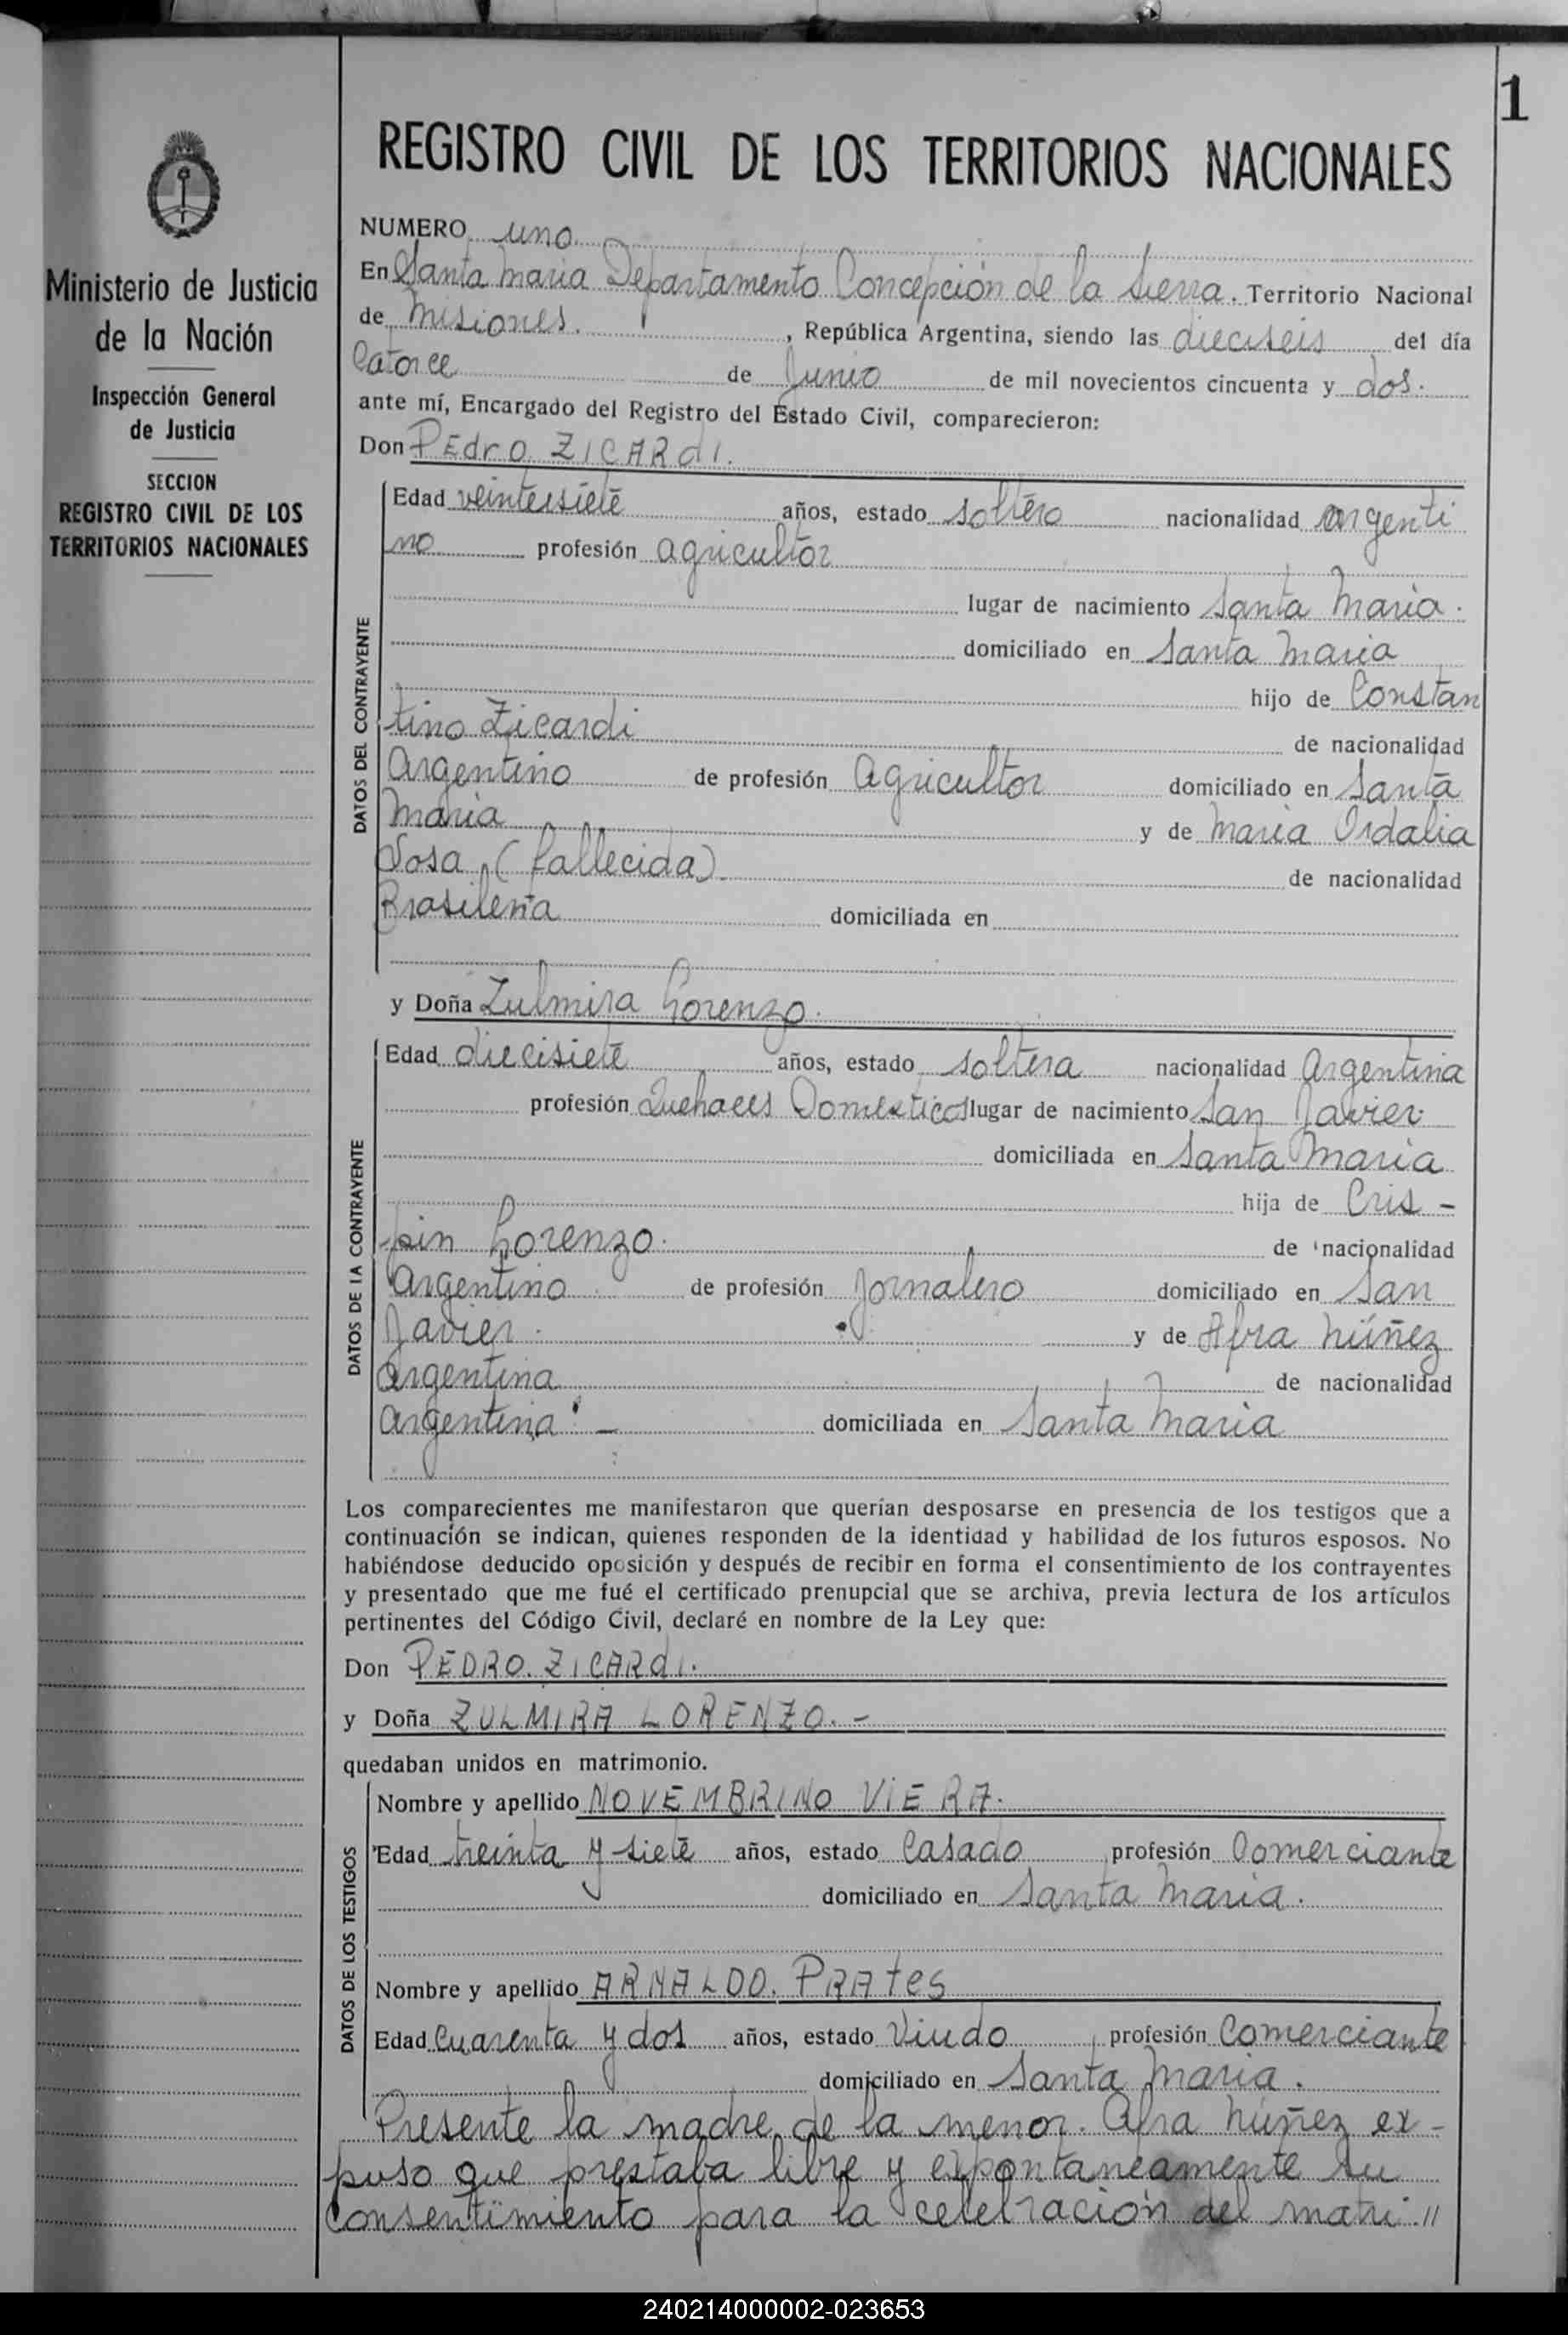 1
REGISTRO CIVIL DE LOS TERRITORIOS NACIONALES
Ministerio de Justicia
de la Nación
Inspección General
de Justicia
SECCION
REGISTRO CIVIL DE LOS
TERRITORIOS NACIONALES
NUMERO uno
En Santa Maria Departamento Concepción de la Sierra. Territorio Nacional
de Misiones. , República Argentina, siendo las dieciseis del día
Catorce de Junio de mil novecientos cincuenta y dos.
ante mí, Encargado del Registro del Estado Civil, comparecieron:
Don PEdro ZICARdI.
DATOS DEL CONTRAYENTE
Edad veintisiete años, estado soltero nacionalidad argenti
no profesión agricultor
lugar de nacimiento Santa Maria.
domiciliado en Santa Maria
hijo de Constan
tino Zicardi de nacionalidad
Argentino de profesión Agricultor domiciliado en Santa
Maria y de Maria Ordalia
Sosa (fallecida) de nacionalidad
Brasileña domiciliada en
y Doña Zulmira Lorenzo.
DATOS DE LA CONTRAYENTE
Edad diecisiete años, estado soltera nacionalidad Argentina
profesión Quehaces Domesticos lugar de nacimiento San Javier
domiciliada en Santa Maria
hija de Cris -
pin Lorenzo. de nacionalidad
Argentino de profesión Jornalero domiciliado en San
Javier. y de Afra Núñez
argentina de nacionalidad
argentina. - domiciliada en Santa Maria
Los comparecientes me manifestaron que querían desposarse en presencia de los testigos que a
continuación se indican, quienes responden de la identidad y habilidad de los futuros esposos. No
habiéndose deducido oposición y después de recibir en forma el consentimiento de los contrayentes
y presentado que me fué el certificado prenupcial que se archiva, previa lectura de los artículos
pertinentes del Código Civil, declaré en nombre de la Ley que:
Don PEDRO. ZICARdI.
y Doña ZULMIRA LORENZO. -
quedaban unidos en matrimonio.
DATOS DE LOS TESTIGOS
Nombre y apellido NOVEMBRINO ViERA.
Edad treinta y siete años, estado Casado profesión Comerciante
domiciliado en Santa Maria.
Nombre y apellido ARNALDO. PRAtes
Edad Cuarenta y dos años, estado Viudo profesión Comerciante
domiciliado en Santa Maria.
Presente la madre de la menor. Afra Núñez ex -
puso que prestaba libre y expontaneamente su
Consentimiento para la celebración del matri.//
240214000002-023653